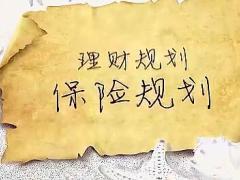 理财规划
保险规划